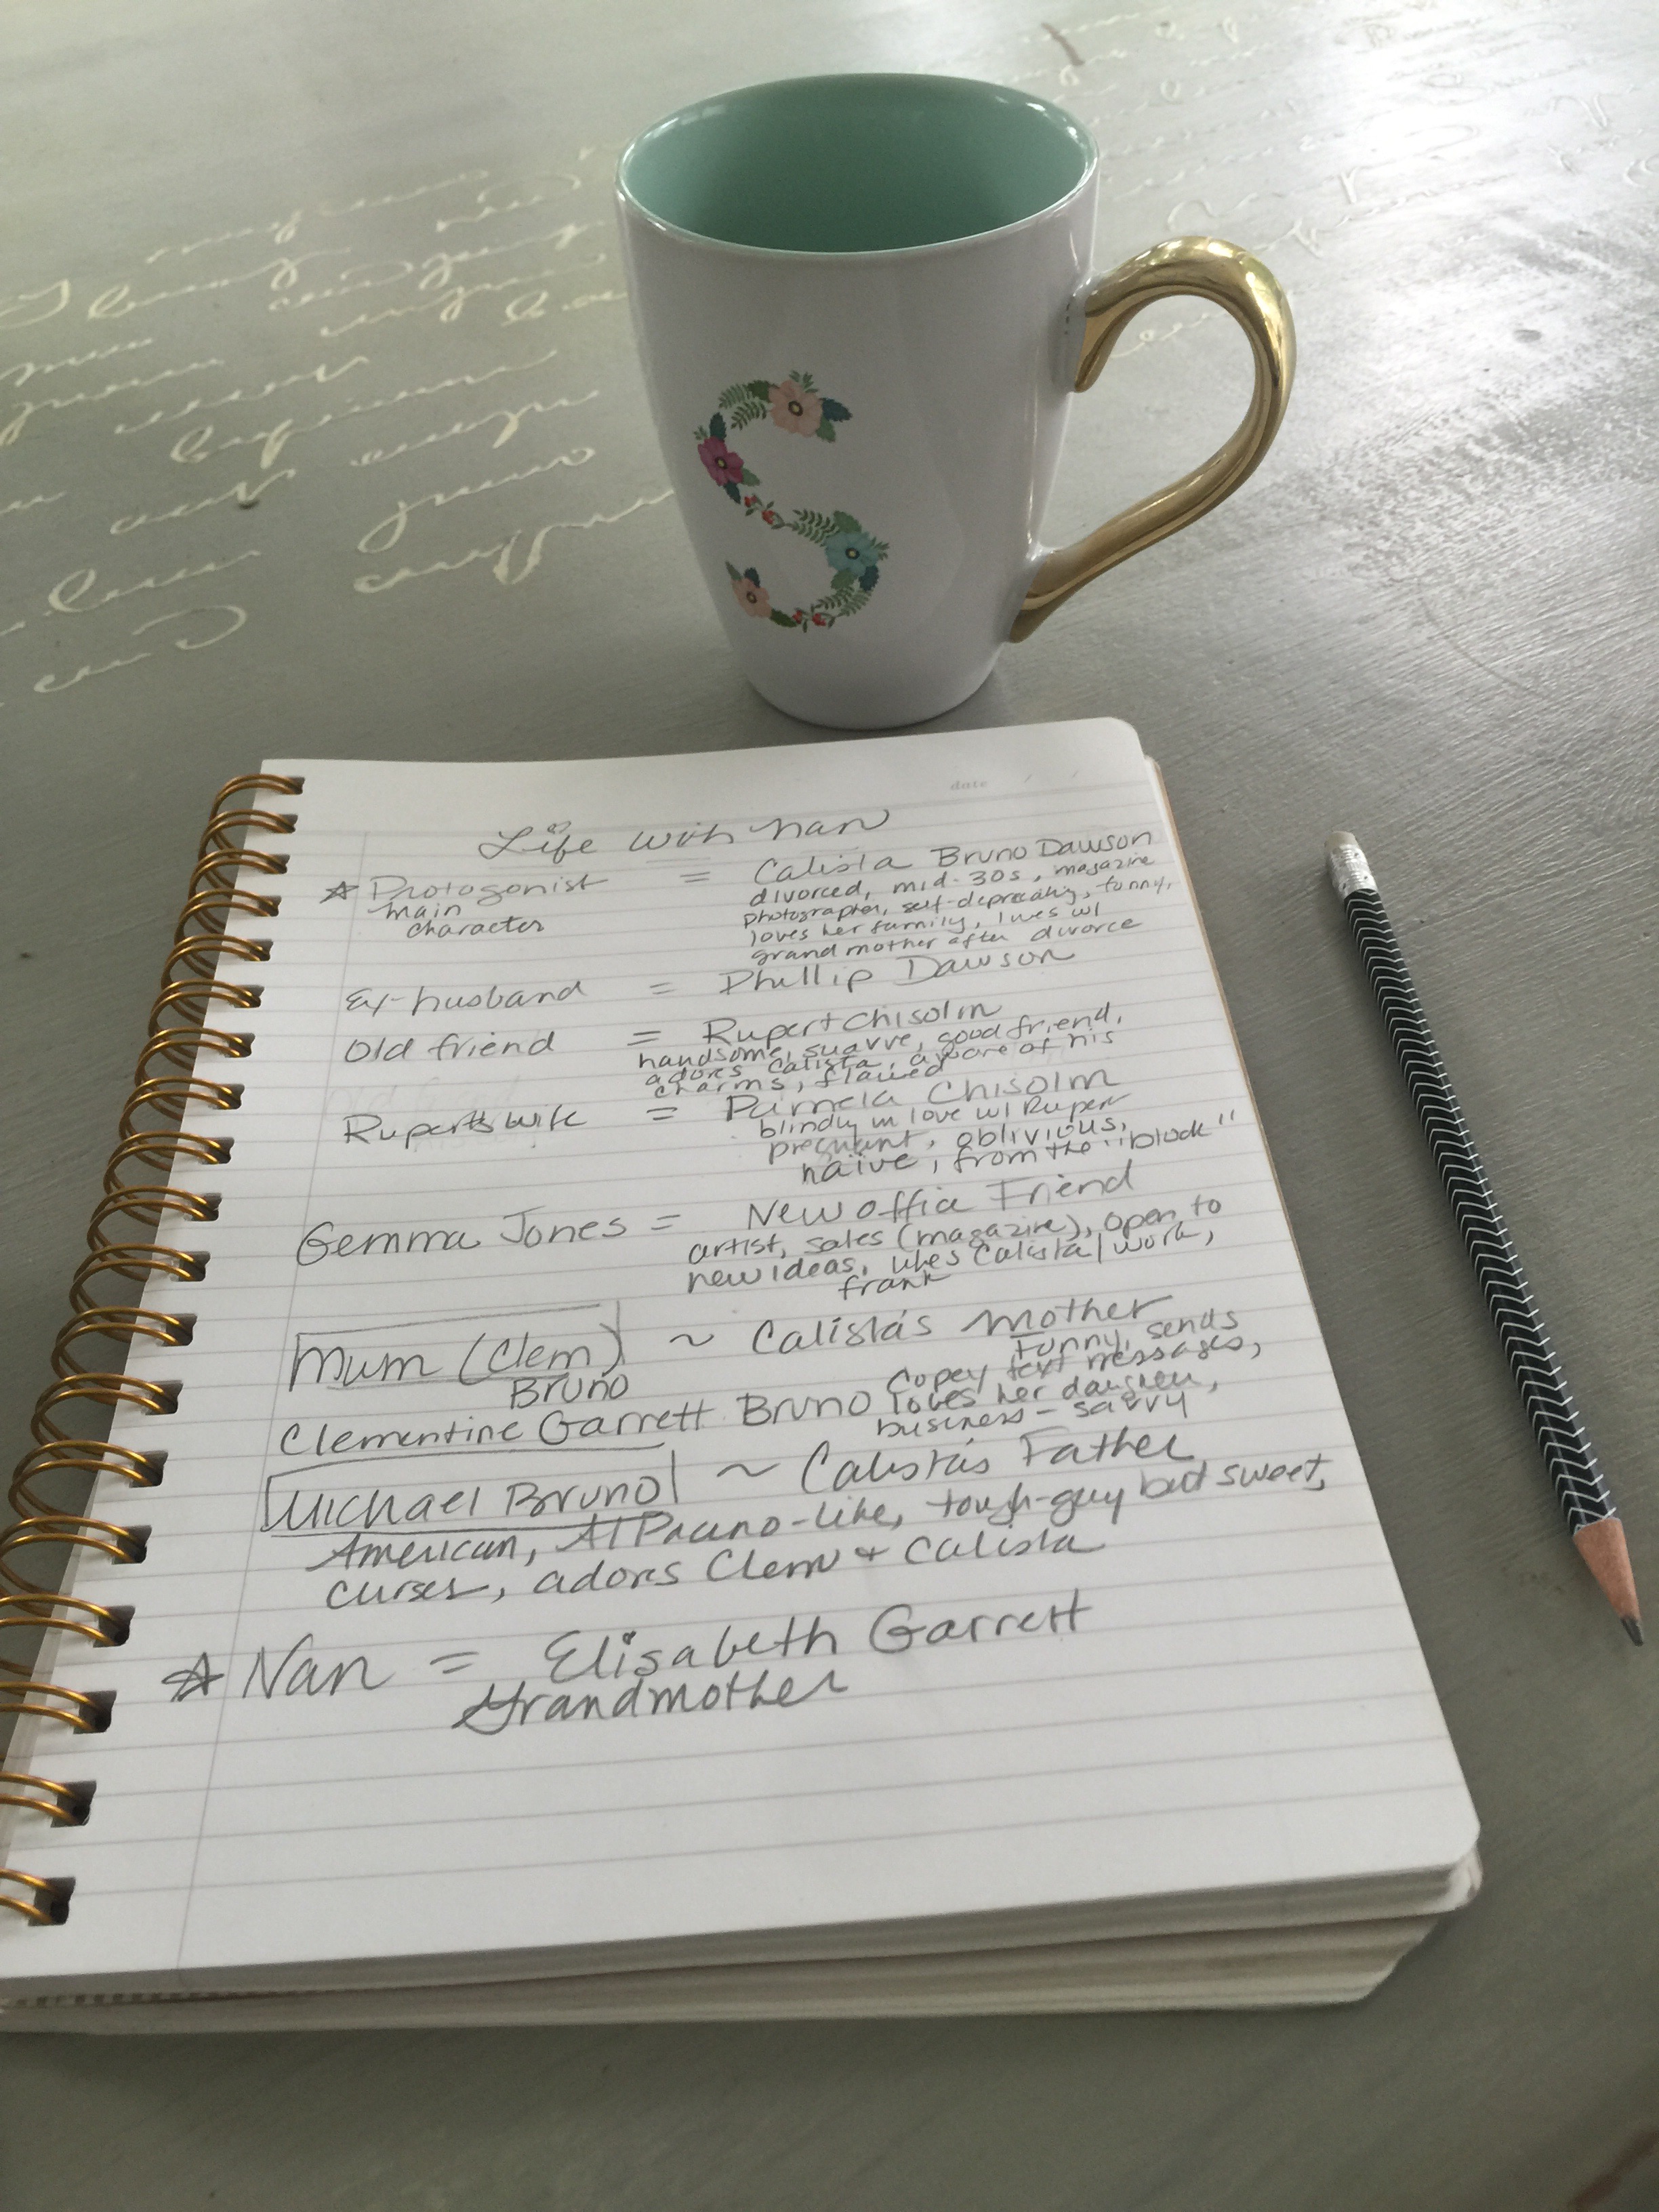 S
date / /
Life with Nan
☆ Protagonist = Calista Bruno Dawson
main
character
divorced, mid-30s, magazine
photographer, self-deprecating, funny,
loves her family, lives w/
grandmother after divorce
Ex-husband = Phillip Dawson
Old friend = Rupert Chisolm
handsome, suavve, good friend,
adores Calista, aware of his
charms, flawed
Rupert's wife = Pamela Chisolm
blindly in love w/ Rupert
pregnant, oblivious,
naïve, from the "block"
Gemma Jones = New office Friend
artist, sales (magazine), open to
new ideas, likes Calista/work,
frank
Mum (Clem) ~ Calista's Mother
Bruno
funny, sends
text messages,
Clementine Garrett Bruno loves her daughter,
business-savvy
Michael Bruno ~ Calista's Father
American, Al Pacino-like, tough-guy but sweet,
curses, adores Clem + Calista
☆ Nan = Elisabeth Garrett
Grandmother